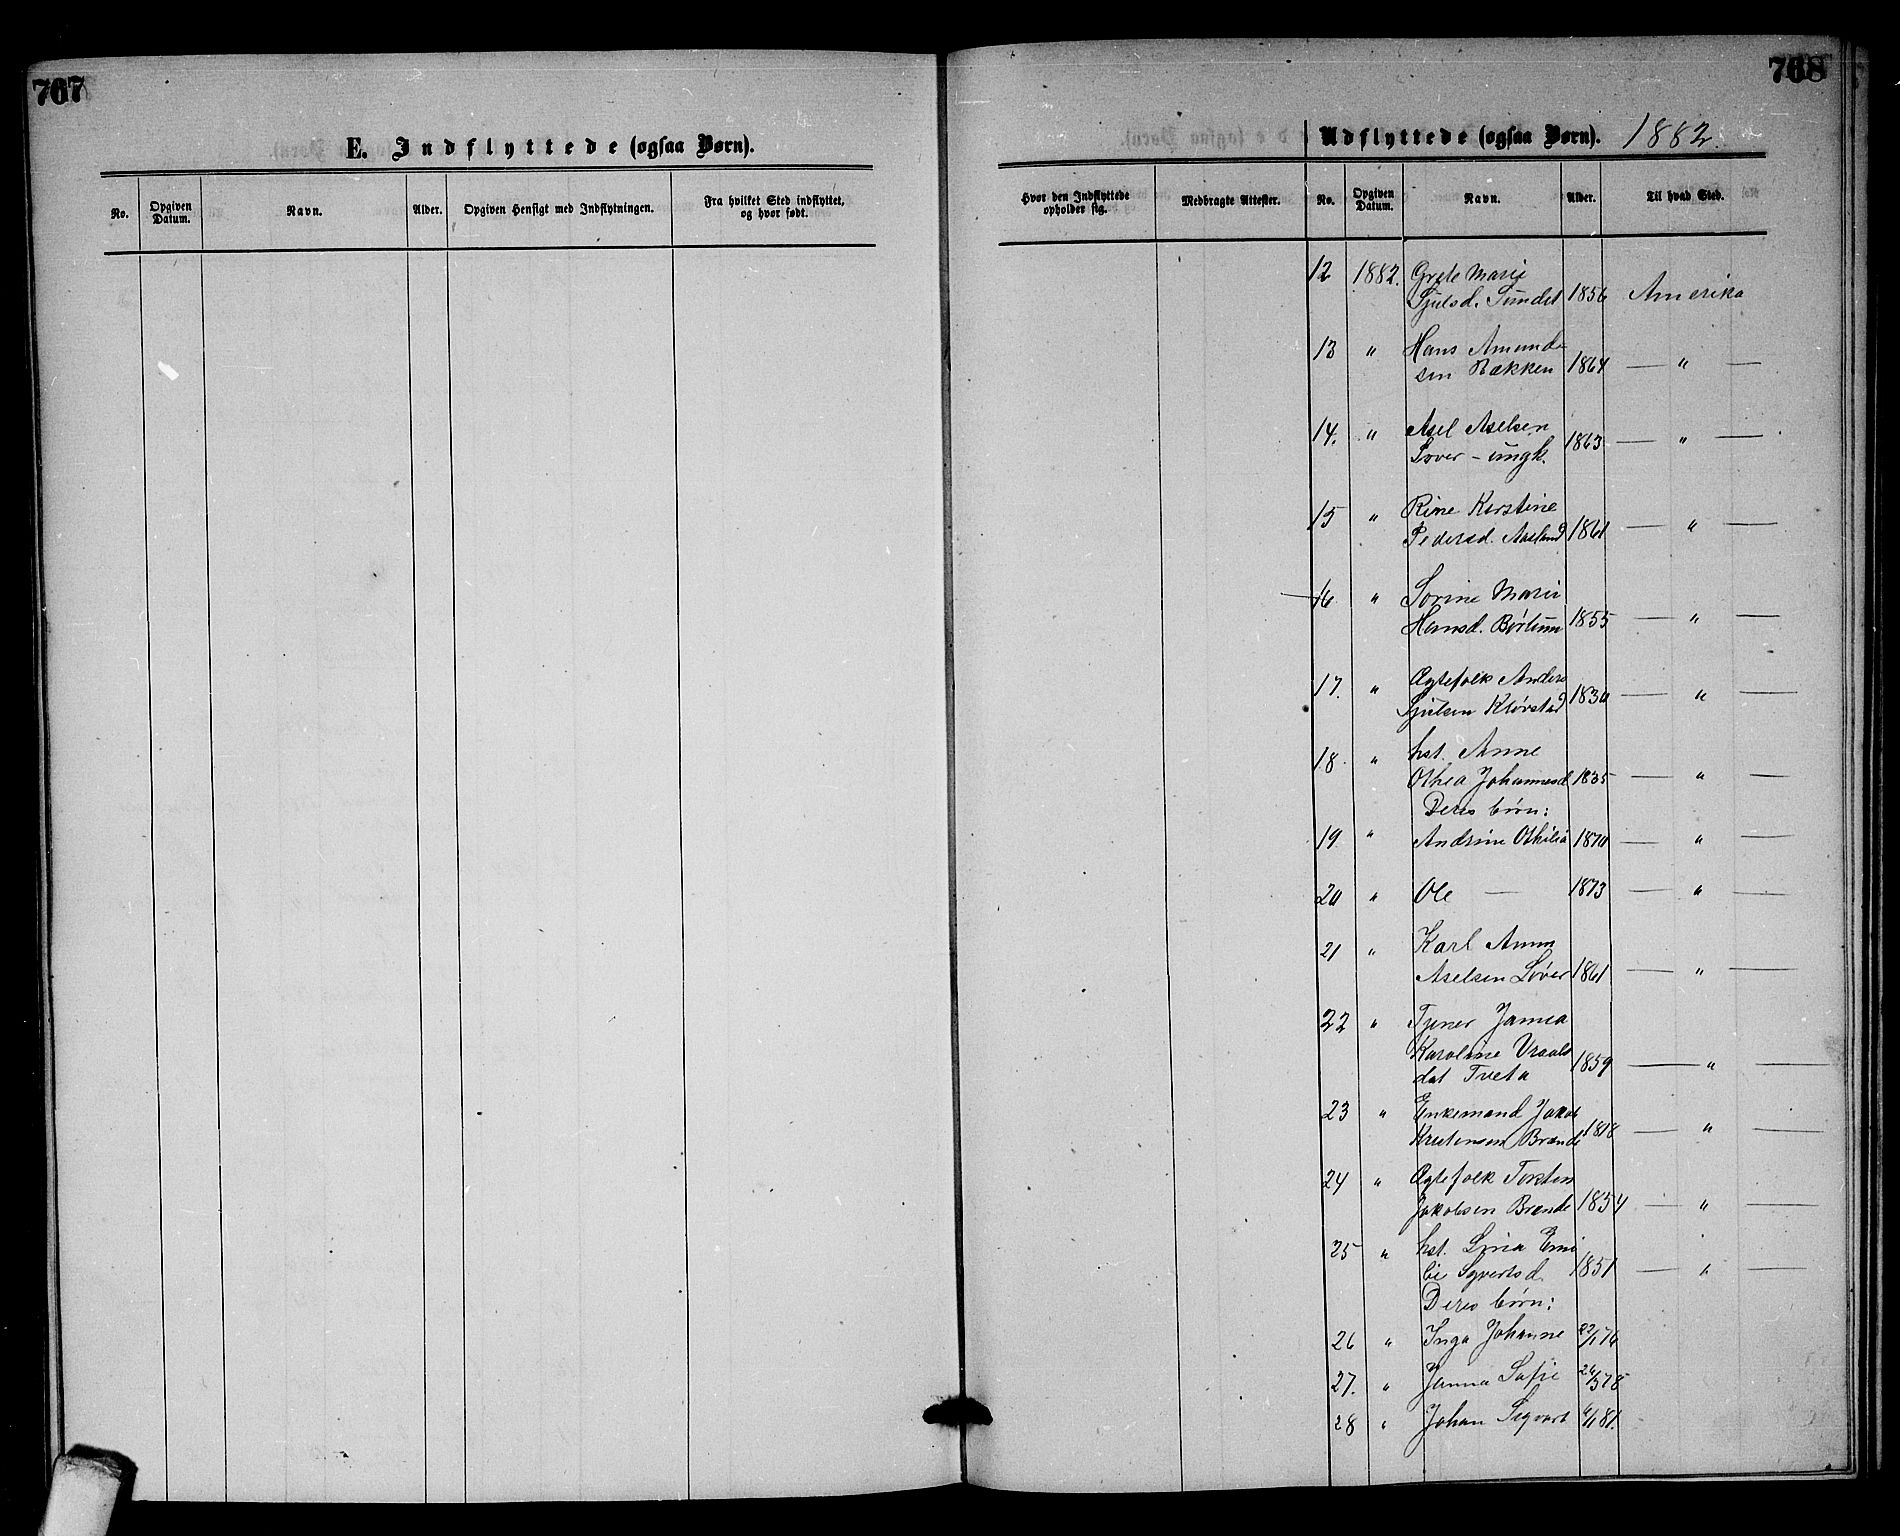 767
E. Indflyttede (ogsaa Børn).
No. Opgiven Datum. Navn. Alder. Opgiven Hensigt med Indflytningen. Fra hvilket Sted indflyttet, og hvor født.
768
Udflyttede (ogsaa Børn). 1882.
Hvor den Indflyttede opholder sig. Medbragte Attester. No. Opgiven Datum. Navn. Alder. Til hvad Sted.
12 1882. Grete Marie
Sjulsd. Sundet 1856 Amerika
13 " Hans Amund-
sen Bakken 1864 — " —
14. " Axel Axelsen
Lover - ungk. 1863 — " —
15 " Rine Kirstine
Pedersd. Aasland 1861 — " —
16 " Sorine Marie
Hansd. Børtum 1855 — " —
17. " Ægtefolk Anders
Sjulsen Klørstad 1830 — " —
18 " hst. Anne
Othea Johannesd 1835 — " —
Deres børn:
19 " Andrine Othilia 1870 — " —
20 " Ole — 1873 — " —
21 " Karl Anun
Axelsen Løver 1861 — " —
22 " Tjener Janna
Karoline Vraals
dat Tveta 1859 — " —
23 " Enkemand Jakob
Kristensen Brænde 1818 — " —
24 " Ægtefolk Torsten
Jakobsen Brænde 1854 — " —
25 " hst. Lina Emi
lie Syverts d. 1851 — " —
Deres børn:
26 " Inga Johanne 22/1 76
27. " Janna Sofie 26/5 78
28 " Johan Sigvart 6/1 81.